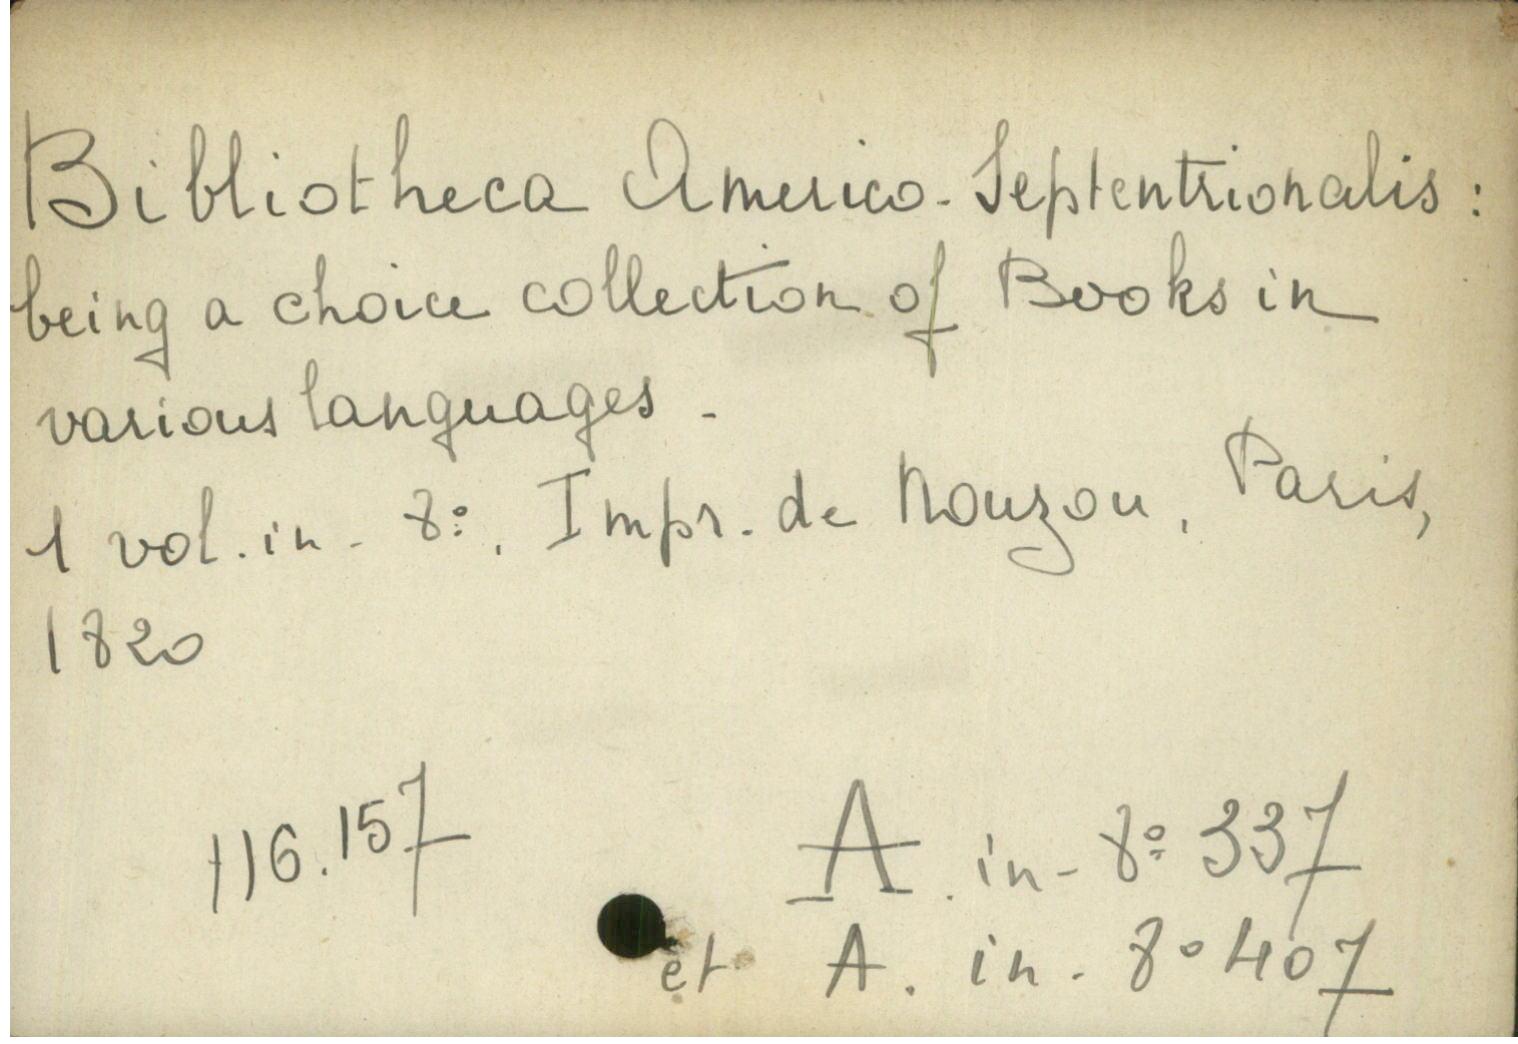 Bibliotheca Americo-Septentrionalis :
being a choice collection of Books in
various languages -
1 vol. in - 8º, Impr. de Nouzou, Paris,
1820
116.157
A. in - 8º 337
et A. in - 8º 407